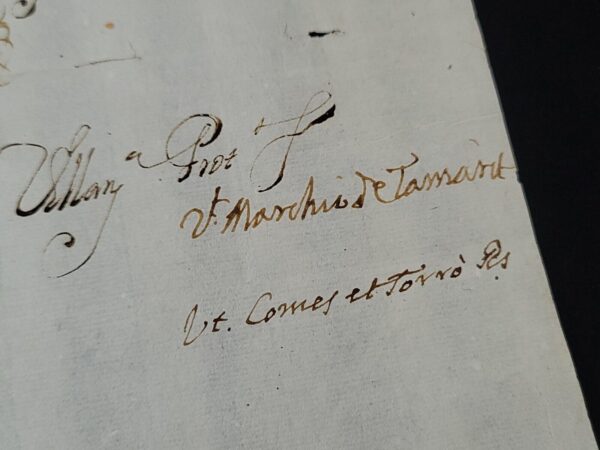 Prot
Vt. Marchio de Tamarit
Vt. Comes et Torrò Rs